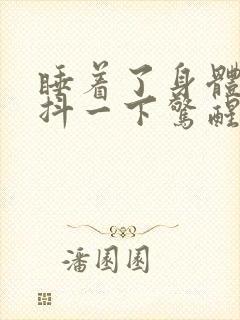 睡着了身體
抖一下驚醒
潘園園